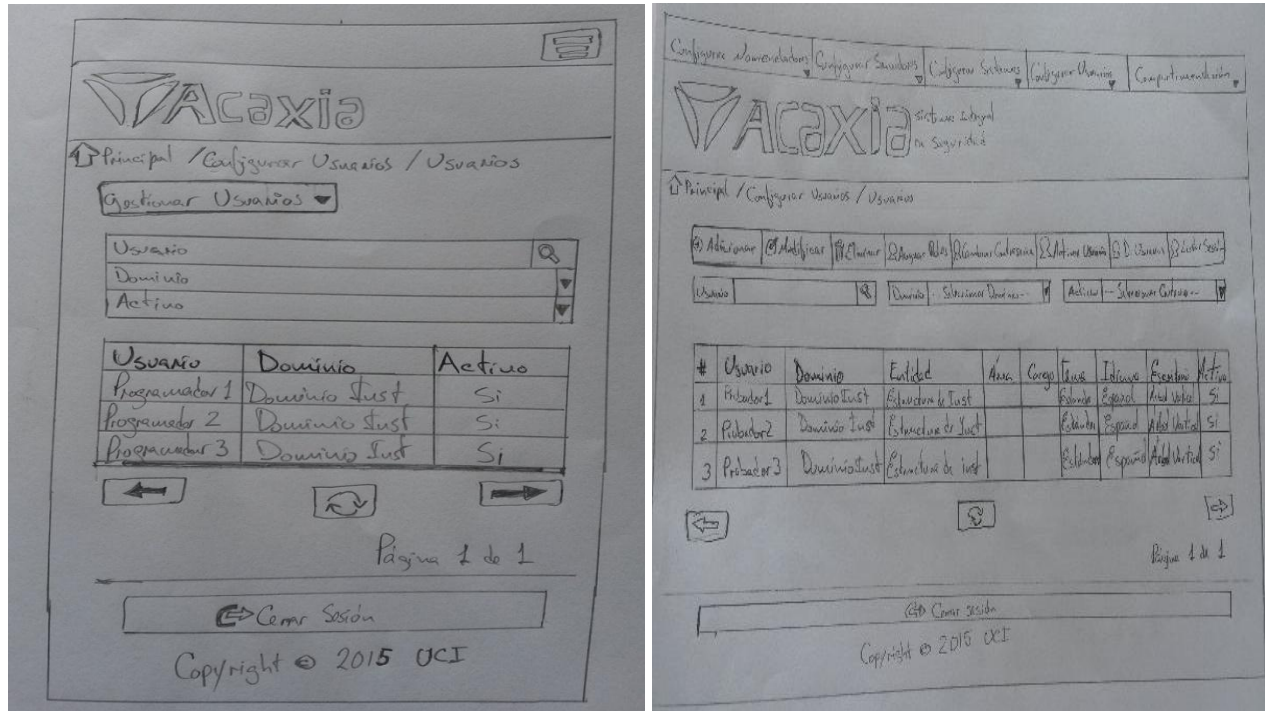 Acaxia
Principal / Configurar Usuarios / Usuarios
Gestionar Usuarios
Usuario
Dominio
Activo
Usuario Dominio Activo
Programador 1 Dominio Inst Si
Programador 2 Dominio Inst Si
Programador 3 Dominio Inst Si
Página 1 de 1
Cerrar Sesión
Copyright © 2015 UCI
Configurar Nomencladores Configurar Servidores Configurar Sistemas Configurar Usuarios Compartimentación
Acaxia sistema Integral
de Seguridad
Principal / Configurar Usuarios / Usuarios
Adicionar Modificar Eliminar Asignar Roles Cambiar Contraseña Activar Usuario D. Usuario Cerrar Sesión
Usuario Dominio --Seleccionar Dominio-- Activo
# Usuario Dominio Entidad Área Cargo Tema Idioma Escritorio Activo
1 Probador1 Dominio Inst Estructura de Inst Estándar Español Árbol Vertical Si
2 Probador2 Dominio Inst Estructura de Inst Estándar Español Árbol Vertical Si
3 Probador3 Dominio Inst Estructura de inst Estándar Español Árbol Vertical Si
Página 1 de 1
Cerrar sesión
Copyright © 2015 UCI